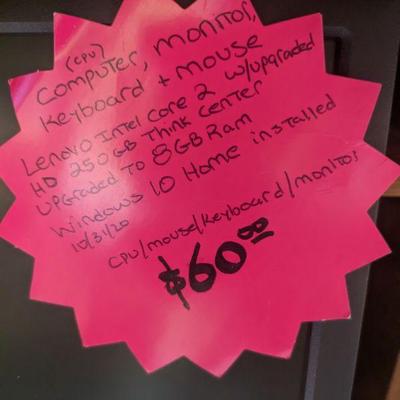 (CPU)
Computer, monitor,
Keyboard + mouse
Lenovo Intel Core 2 w/upgraded
HD 250GB Think Center
upgraded To 8GB Ram
Windows 10 Home installed
10/31/20
CPU/mouse/Keyboard/monitor
$60.00